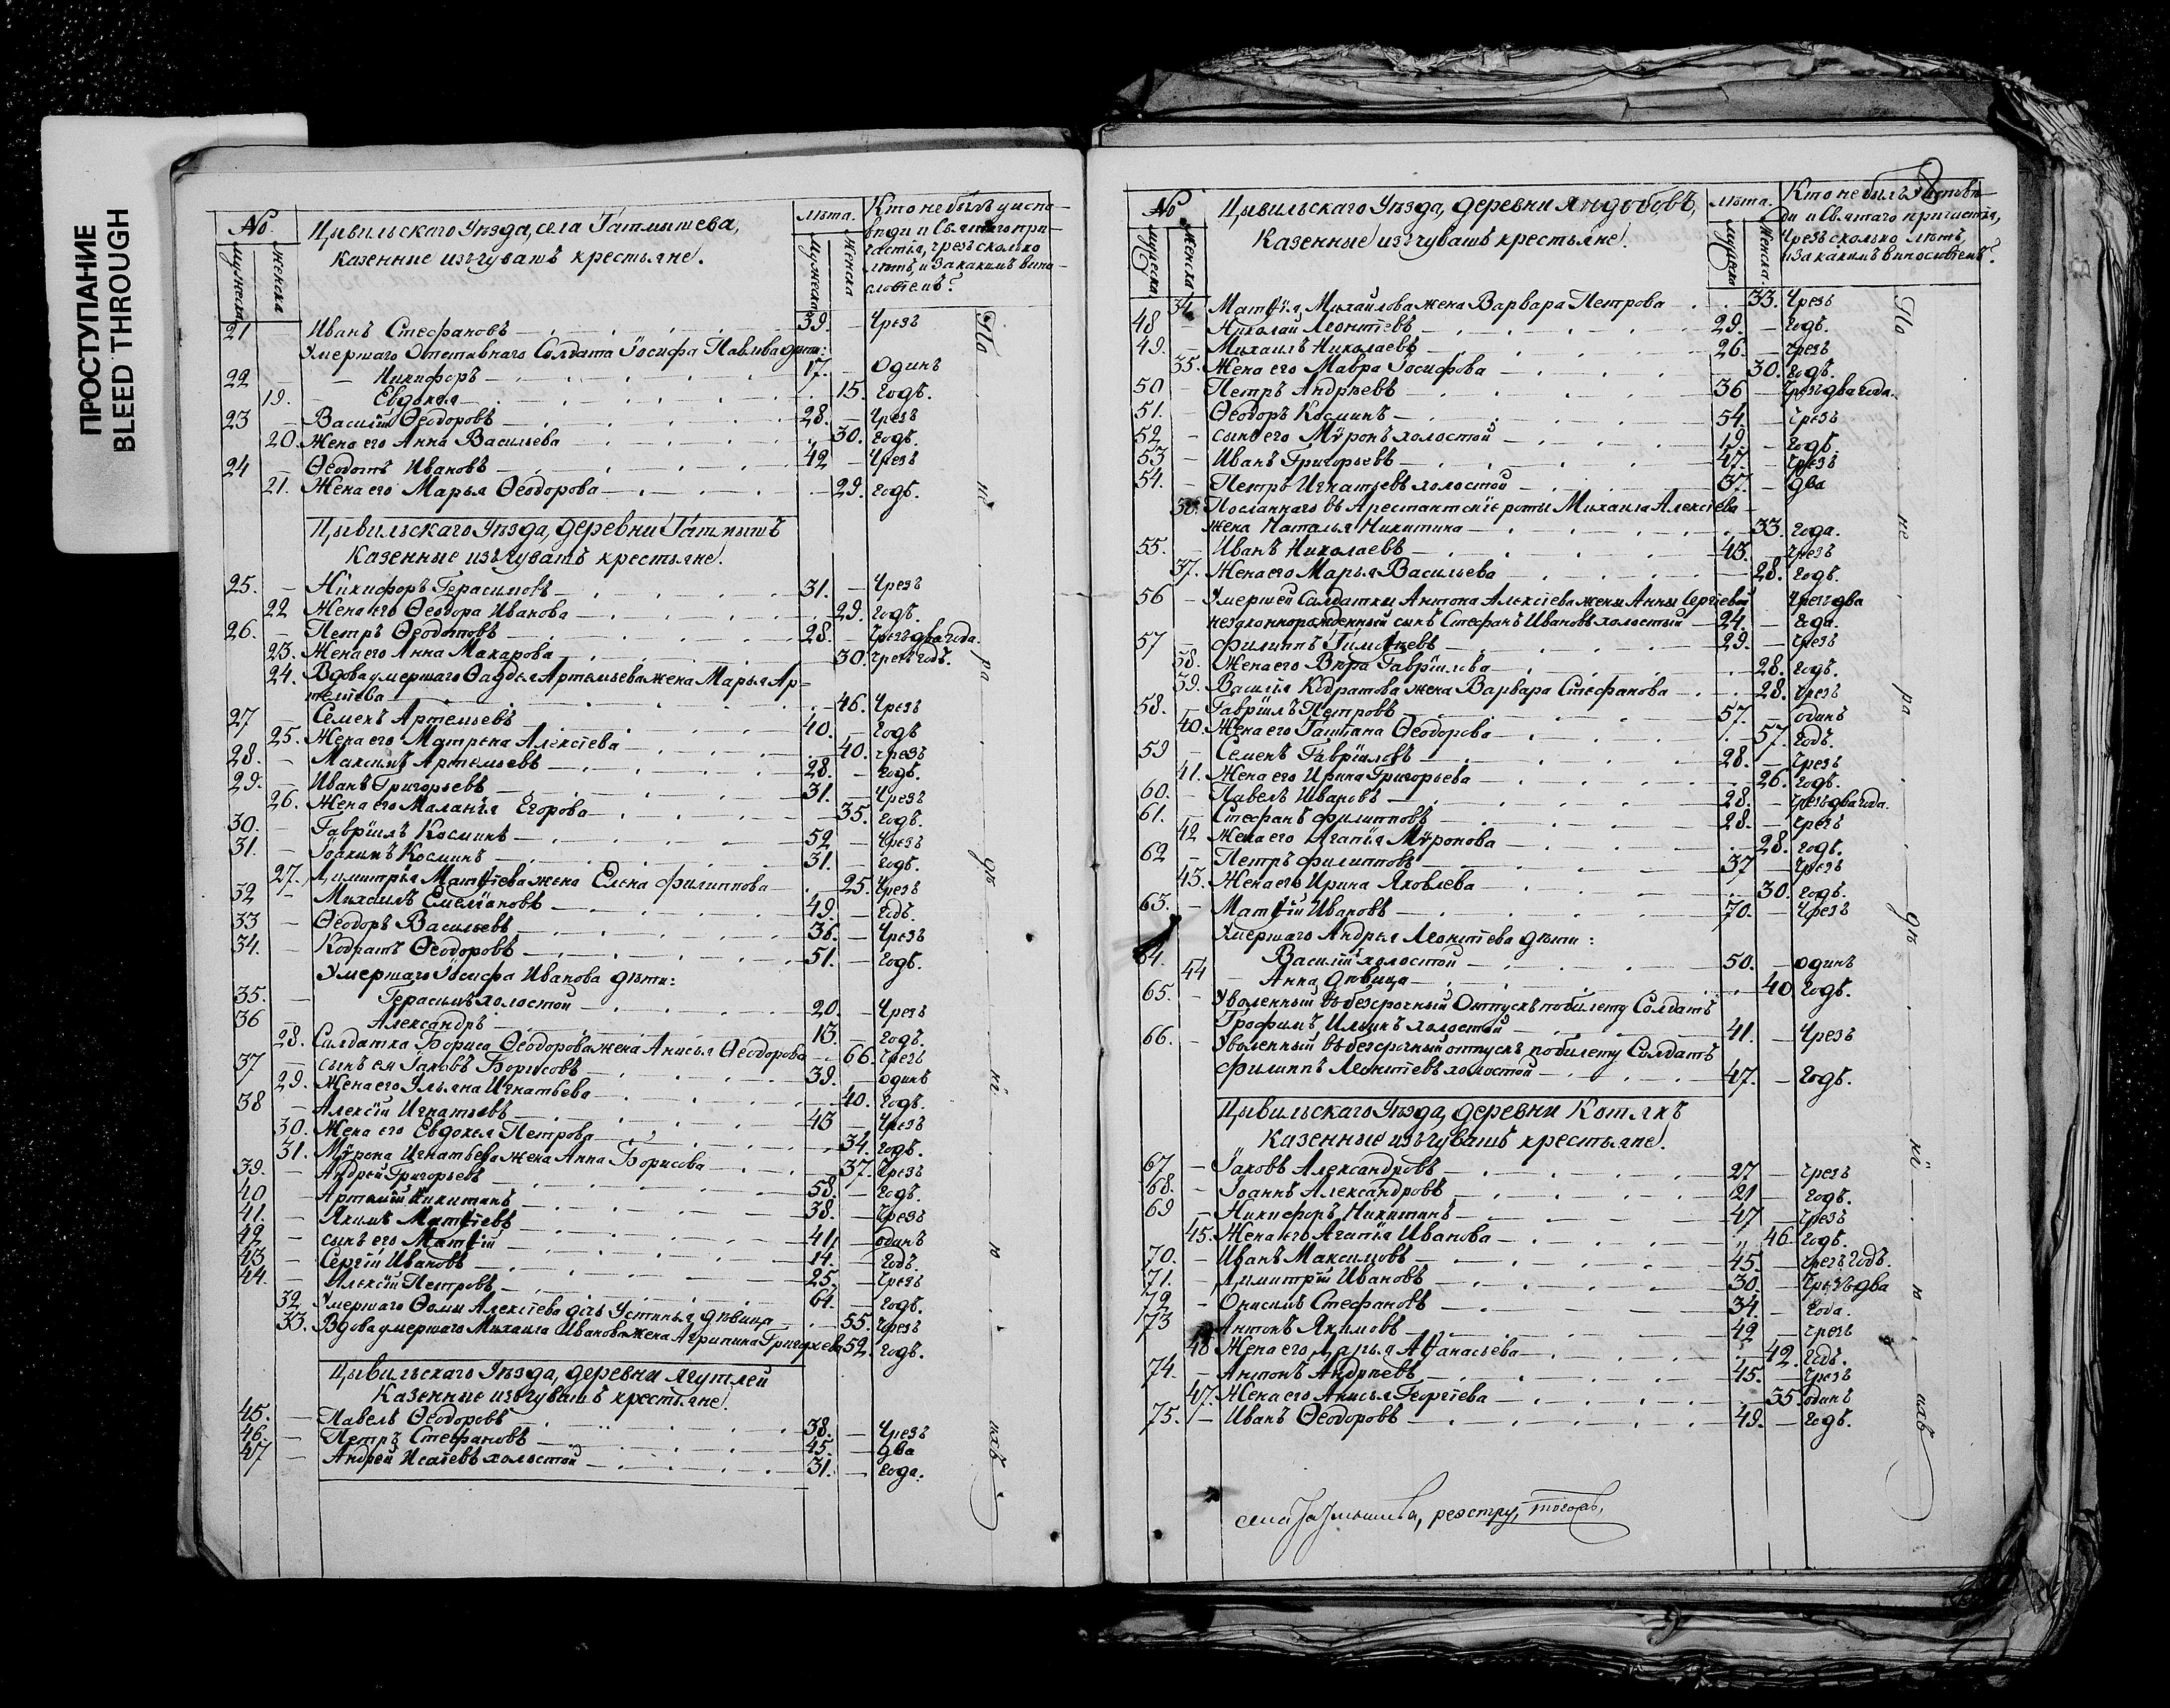 ПРОСТУПАНИЕ
BLEED THROUGH
№
Мужеска
Женска
Цывильскаго Уѣзда, села Татмышева,
Казенные изъ чувашъ крестьяне.
Лѣта.
Мужеска
Женска
Кто не былъ у испо-
вѣди и Святаго при-
частія, чрезъ сколько
лѣтъ, и за какимъ вино-
словіемъ?
21 Иванъ Стефановъ 39. – Чрезъ
Умершаго Отставнаго Солдата Іосифа Павлова дѣти:
22 – Никифоръ 17. – Одинъ
19. Евдокія 15. годъ.
23 – Василій Ѳеодоровъ 28. – Чрезъ
20. Жена его Анна Васильева 30. годъ.
24 – Ѳеодотъ Ивановъ 42 – Чрезъ
21. Жена его Марья Ѳеодорова 29. годъ.
Цывильскаго Уѣзда, деревни Татмышъ
Казенные изъ чувашъ крестьяне.
25. – Никифоръ Герасимовъ 31. – Чрезъ
22 Жена его Ѳеодора Иванова 29. годъ.
26. – Петръ Ѳеодотовъ 28. – Чрезъ два года.
23. Жена его Анна Макарова 30. Чрезъ годъ.
24. Вдова умершаго Ѳаддея Артемьева жена Марья Ар-
темьева 46. Чрезъ
27 – Семенъ Артемьевъ 40. – годъ
25. Жена его Матрена Алексѣева 40. Чрезъ
28. – Максимъ Артемьевъ 28. – годъ.
29. – Иванъ Григорьевъ 31. – Чрезъ
26. Жена его Маланья Егорова 35. годъ.
30. – Гавріилъ Косминъ 52 – Чрезъ
31. – Іоакимъ Косминъ 31. – годъ.
27. Димитрія Матѳѣева жена Елена Филиппова 25. Чрезъ
32 – Михаилъ Емеліановъ 49. – годъ.
33 – Ѳеодоръ Васильевъ 36. – Чрезъ
34. – Кодратъ Ѳеодоровъ 51. – годъ.
Умершаго Іосифа Иванова дѣти:
35. – Герасимъ холостой 20. – Чрезъ
36 – Александръ 13. – годъ.
28. Солдатка Бориса Ѳеодорова жена Анисья Ѳеодорова 66. Чрезъ
37 – сынъ ея Іаковъ Борисовъ 39. – одинъ
29. Жена его Ульяна Игнатьева 40. годъ.
38 – Алексій Игнатьевъ 43 – Чрезъ
30. Жена его Евдокея Петрова 34. годъ.
31. Мѵрона Игнатьева жена Анна Борисова 37. Чрезъ
39. – Андрей Григорьевъ 58. – годъ.
40 – Артемій Никитинъ 38. – Чрезъ
41. – Якимъ Матѳѣевъ 41. – одинъ
42 – сынъ его Матѳій 14. – годъ.
43 – Сергій Ивановъ 25. – Чрезъ
44. – Алексій Петровъ 64. – годъ.
32 Умершаго Ѳомы Алексѣева дочь Устинья дѣвица 55. Чрезъ
33. Вдова умершаго Михаила Иванова жена Агрипина Григорьева 52. годъ.
Цывильскаго Уѣзда, деревни Ягутлей
Казенные изъ чувашъ крестьяне.
45. – Павелъ Ѳеодоровъ 38. – Чрезъ
46. – Петръ Стефановъ 45. – два
47 – Андрей Исаіевъ холостой 31. – года.
По не ра дѣ ні ю ихъ
№
Мужеска
Женска
Цывильскаго Уѣзда, деревни Яндобовъ,
Казенные изъ чувашъ крестьяне.
Лѣта.
Мужеска
Женска
Кто не былъ у Исповѣ-
ди и Святаго причастія,
Чрезъ сколько лѣтъ,
и за какимъ винословіемъ?
34. Матѳія Михайлова жена Варвара Петрова 33. Чрезъ
48 – Николай Леонтіевъ 29. – годъ.
49. – Михаилъ Николаевъ 26. – Чрезъ
35. Жена его Мавра Іосифова 30. годъ.
50 – Петръ Андрѣевъ 36 – Чрезъ два года.
51. – Ѳеодоръ Косминъ 54. – Чрезъ
52 – сынъ его Мѵронъ холостой 19. – годъ.
53 – Иванъ Григорьевъ 47. – Чрезъ
54. – Петръ Игнатьевъ холостой 37. – два
36. Посланнаго въ Арестантскіе роты Михаила Алексѣева
жена Наталья Никитина 33. года.
55. – Иванъ Николаевъ 43. – Чрезъ
37. Жена его Марья Васильева 28. годъ.
56 – Умершей Солдатки Антона Алексѣева жены Анны Сергѣевой Чрезъ два
незаконнорожденный сынъ Стефанъ Ивановъ холостый 24. – года.
57 – Филиппъ Тимоѳѣевъ 29. – Чрезъ
38. Жена его Вѣра Гавріилова 28. годъ.
39. Василія Кодратова жена Варвара Стефанова 28. Чрезъ
58. – Гавріилъ Петровъ 57. – одинъ
40. Жена его Татіана Ѳеодорова 57. годъ.
59 – Семенъ Гавріиловъ 28. – Чрезъ
41. Жена его Ирина Григорьева 26. годъ.
60. – Павелъ Ивановъ 28. – Чрезъ два года.
61. – Стефанъ Филипповъ 28. – Чрезъ
42 Жена его Агапія Мѵронова 28. годъ.
62 – Петръ Филипповъ 37 – Чрезъ
43. Жена его Ирина Яковлева 30. годъ.
63. – Матѳій Ивановъ 70. – Чрезъ
Умершаго Андрея Леонтіева дѣти:
64. Василій холостой 50. – одинъ
44 Анна дѣвица 40. годъ.
65. – Уволенный въ безсрочный Отпускъ по билету Солдатъ
Трофимъ Ильинъ холостой 41. – Чрезъ
66. – Уволенный въ безсрочный отпускъ по билету Солдатъ
Филиппъ Леонтіевъ холостой 47. – годъ.
Цывильскаго Уѣзда, деревни Котякъ
Казенные изъ чувашъ крестьяне.
67 – Іаковъ Александровъ 27 – Чрезъ
68. – Іоаннъ Александровъ 21 – годъ.
69 – Никифоръ Никитинъ 47 – Чрезъ
45. Жена его Агапія Иванова 46 годъ.
70. – Иванъ Максимовъ 45. – Чрезъ годъ.
71. – Димитрій Ивановъ 30. – Чрезъ два
72 – Онисимъ Стефановъ 34. – года.
73 Антонъ Якимовъ 42 – Чрезъ
46 Жена его Дарья Аѳанасьева 42. годъ.
74. – Антонъ Андрѣевъ 45. – Чрезъ
47. Жена его Анисья Георгіева 35. одинъ
75. – Иванъ Ѳеодоровъ 49. – годъ.
По не ра дѣ ні ю ихъ
села Татмышева, реэстру,